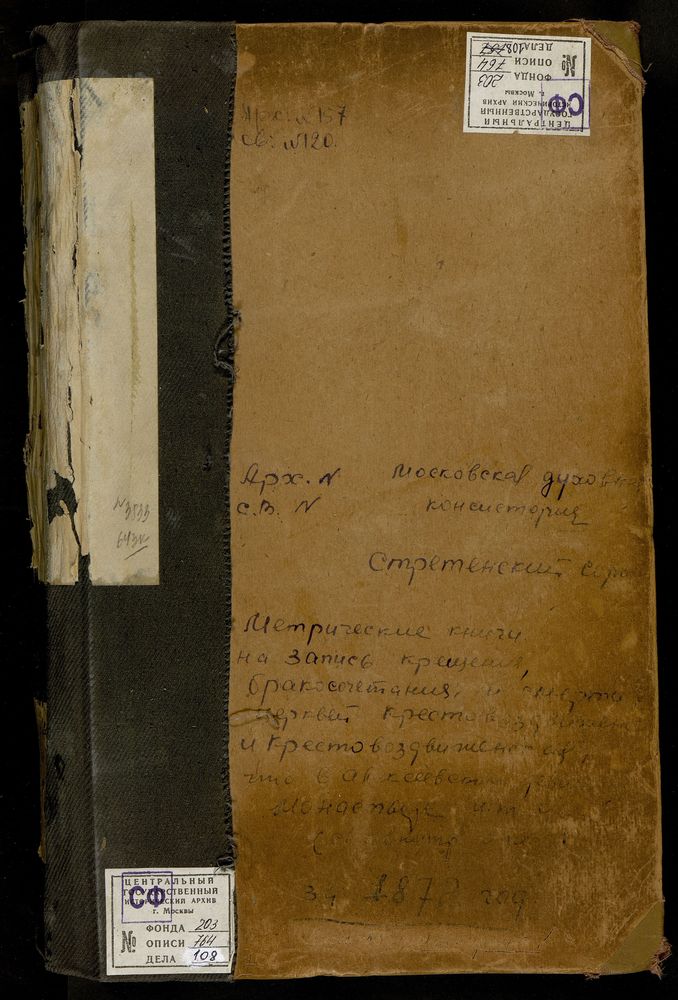 ЦЕНТРАЛЬНЫЙ
ГОСУДАРСТВЕННЫЙ
ИСТОРИЧЕСКИЙ АРХИВ
г. Москвы
СФ
№
ФОНДА 203
ОПИСИ 764
ДЕЛА 108
Арх. № 157
св. №120.
Арх. N Московская духовн
с.в. N консистория
Стретенский
Метрические книги
на запись крещения,
бракосочетания, и смерти
церквей крестовоздвижен
и Крестовоздвиженс
что в Алексеевск
Монастыре
за 1878 год
N 3533
ЦЕНТРАЛЬНЫЙ
ГОСУДАРСТВЕННЫЙ
ИСТОРИЧЕСКИЙ АРХИВ
г. Москвы
СФ
№
ФОНДА 203
ОПИСИ 764
ДЕЛА 108